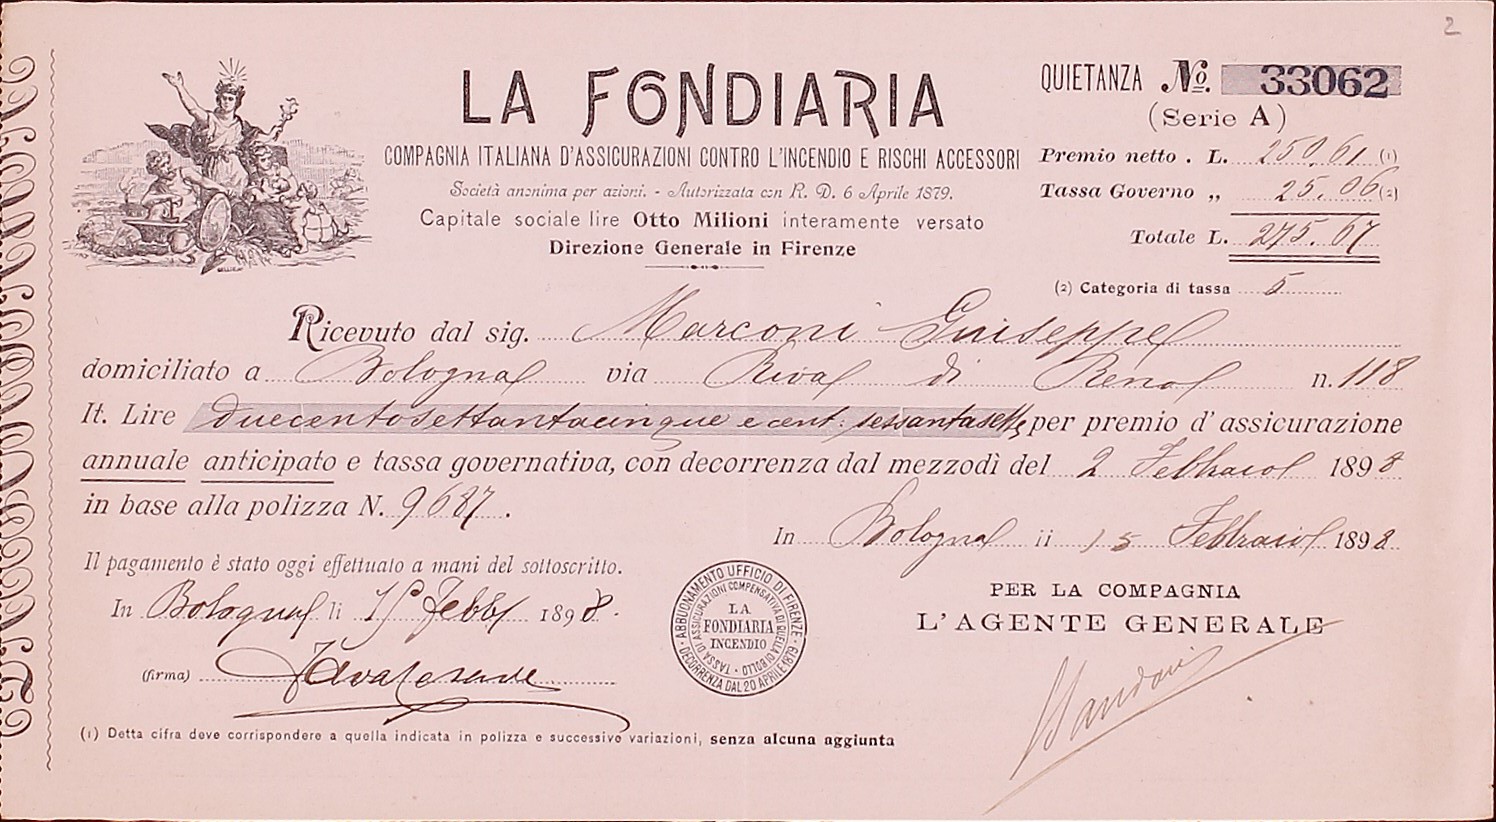 2
LA FONDIARIA
COMPAGNIA ITALIANA D'ASSICURAZIONI CONTRO L'INCENDIO E RISCHI ACCESSORI
Società anonima per azioni. - Autorizzata con R. D. 6 Aprile 1879.
Capitale sociale lire Otto Milioni interamente versato
Direzione Generale in Firenze
QUIETANZA No. 33062
(Serie A)
Premio netto . L. 250.61 (1)
Tassa Governo „ 25.06 (2)
Totale L. 275.67
(2) Categoria di tassa 5
Ricevuto dal sig. Marconi Giuseppe
domiciliato a Bologna via Riva di Reno n. 118
It. Lire duecentosettantacinque e cent: sessantasette per premio d' assicurazione
annuale anticipato e tassa governativa, con decorrenza dal mezzodì del 2 Febbraio 1898
in base alla polizza N. 9687.
In Bologna il 15 Febbraio 1898
Il pagamento è stato oggi effettuato a mani del sottoscritto.
In Bologna li 15 Febb 1898.
(firma)
ABBUONAMENTO UFFICIO DI FIRENZE · DECORRENZA DAL 20 APRILE 1879 ·
TASSA DI ASSICURAZIONI COMPENSATIVA DI QUELLA DI BOLLO ·
LA
FONDIARIA
INCENDIO
PER LA COMPAGNIA
L'AGENTE GENERALE
(1) Detta cifra deve corrispondere a quella indicata in polizza e successive variazioni, senza alcuna aggiunta